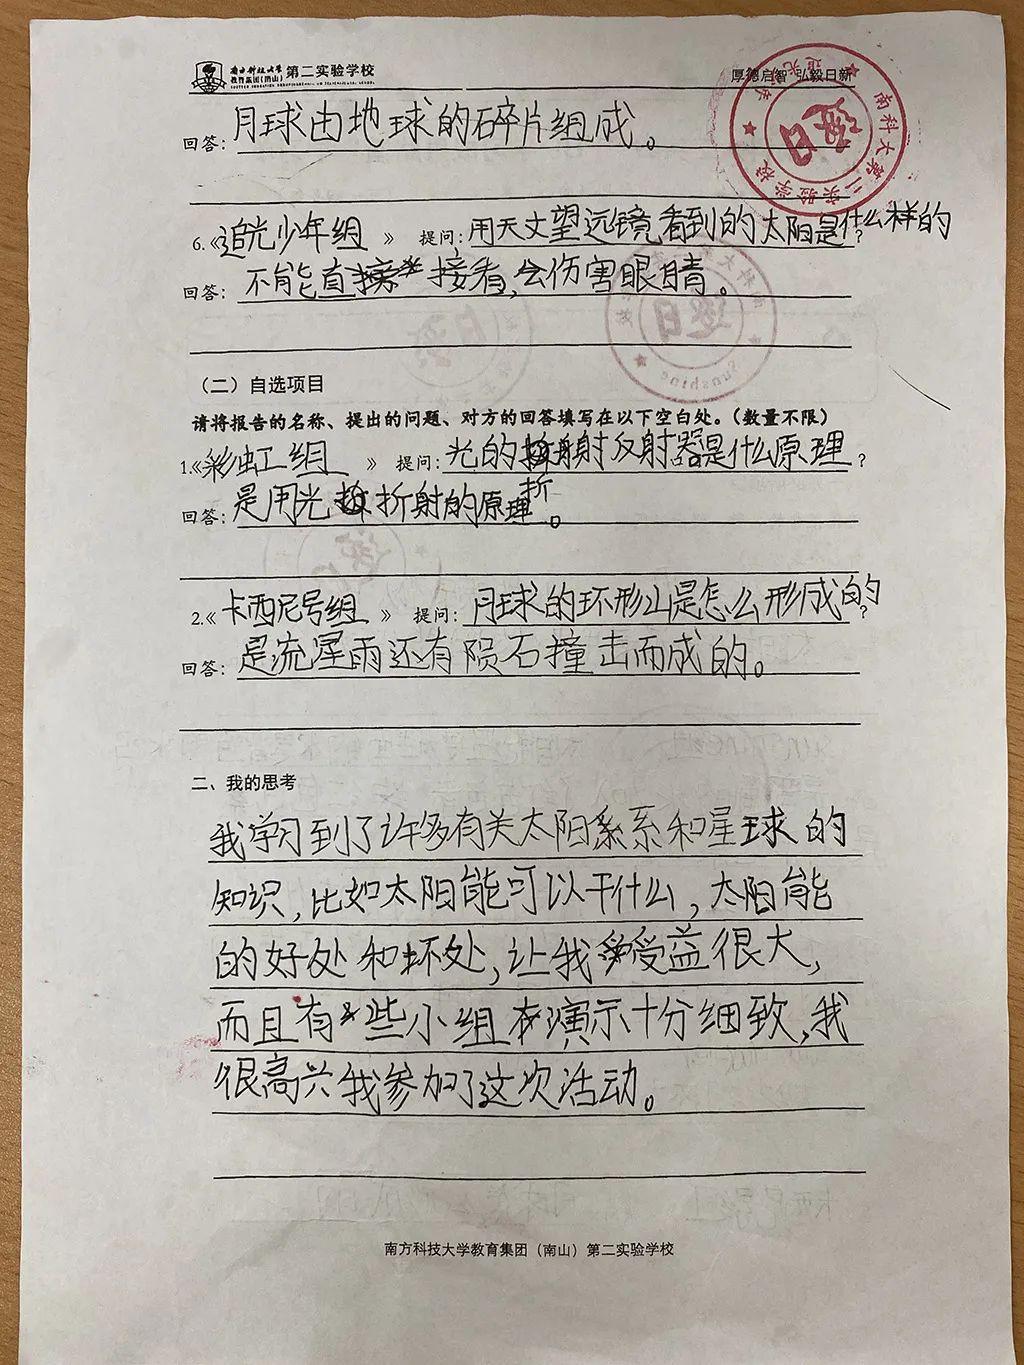 南方科技大学
教育集团(南山) 第二实验学校
厚德启智 弘毅日新
南科大第二实验学校
逐日
回答：月球由地球的碎片组成。
6.《追光少年组》 提问：用天文望远镜看到的太阳是什么样的？
回答：不能直接看，会伤害眼睛。
Sunshine
（二）自选项目
请将报告的名称、提出的问题、对方的回答填写在以下空白处。（数量不限）
1.《彩虹组》 提问：光的射反射器是什么原理？
回答：是用光折射的原理。
折
2.《卡西尼号组》 提问：月球的环形山是怎么形成的？
回答：是流星雨还有陨石撞击而成的。
二、我的思考
我学习到了许多有关太阳系和星球的
知识，比如太阳能可以干什么，太阳能
的好处和坏处，让我受益很大，
而且有些小组演示十分细致，我
很高兴我参加了这次活动。
南方科技大学教育集团（南山）第二实验学校